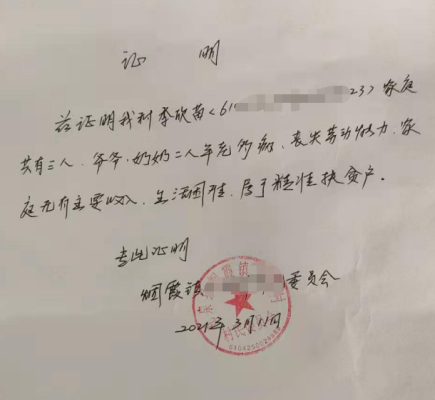 证 明
兹证明我村李欣苗(61 23)家庭
共有三人、爷爷、奶奶二人年老多病、丧失劳动能力、家
庭无有主要收入、生活困难、属于精准扶贫户。
专此证明
烟霞镇 委员会
2021年3月11日